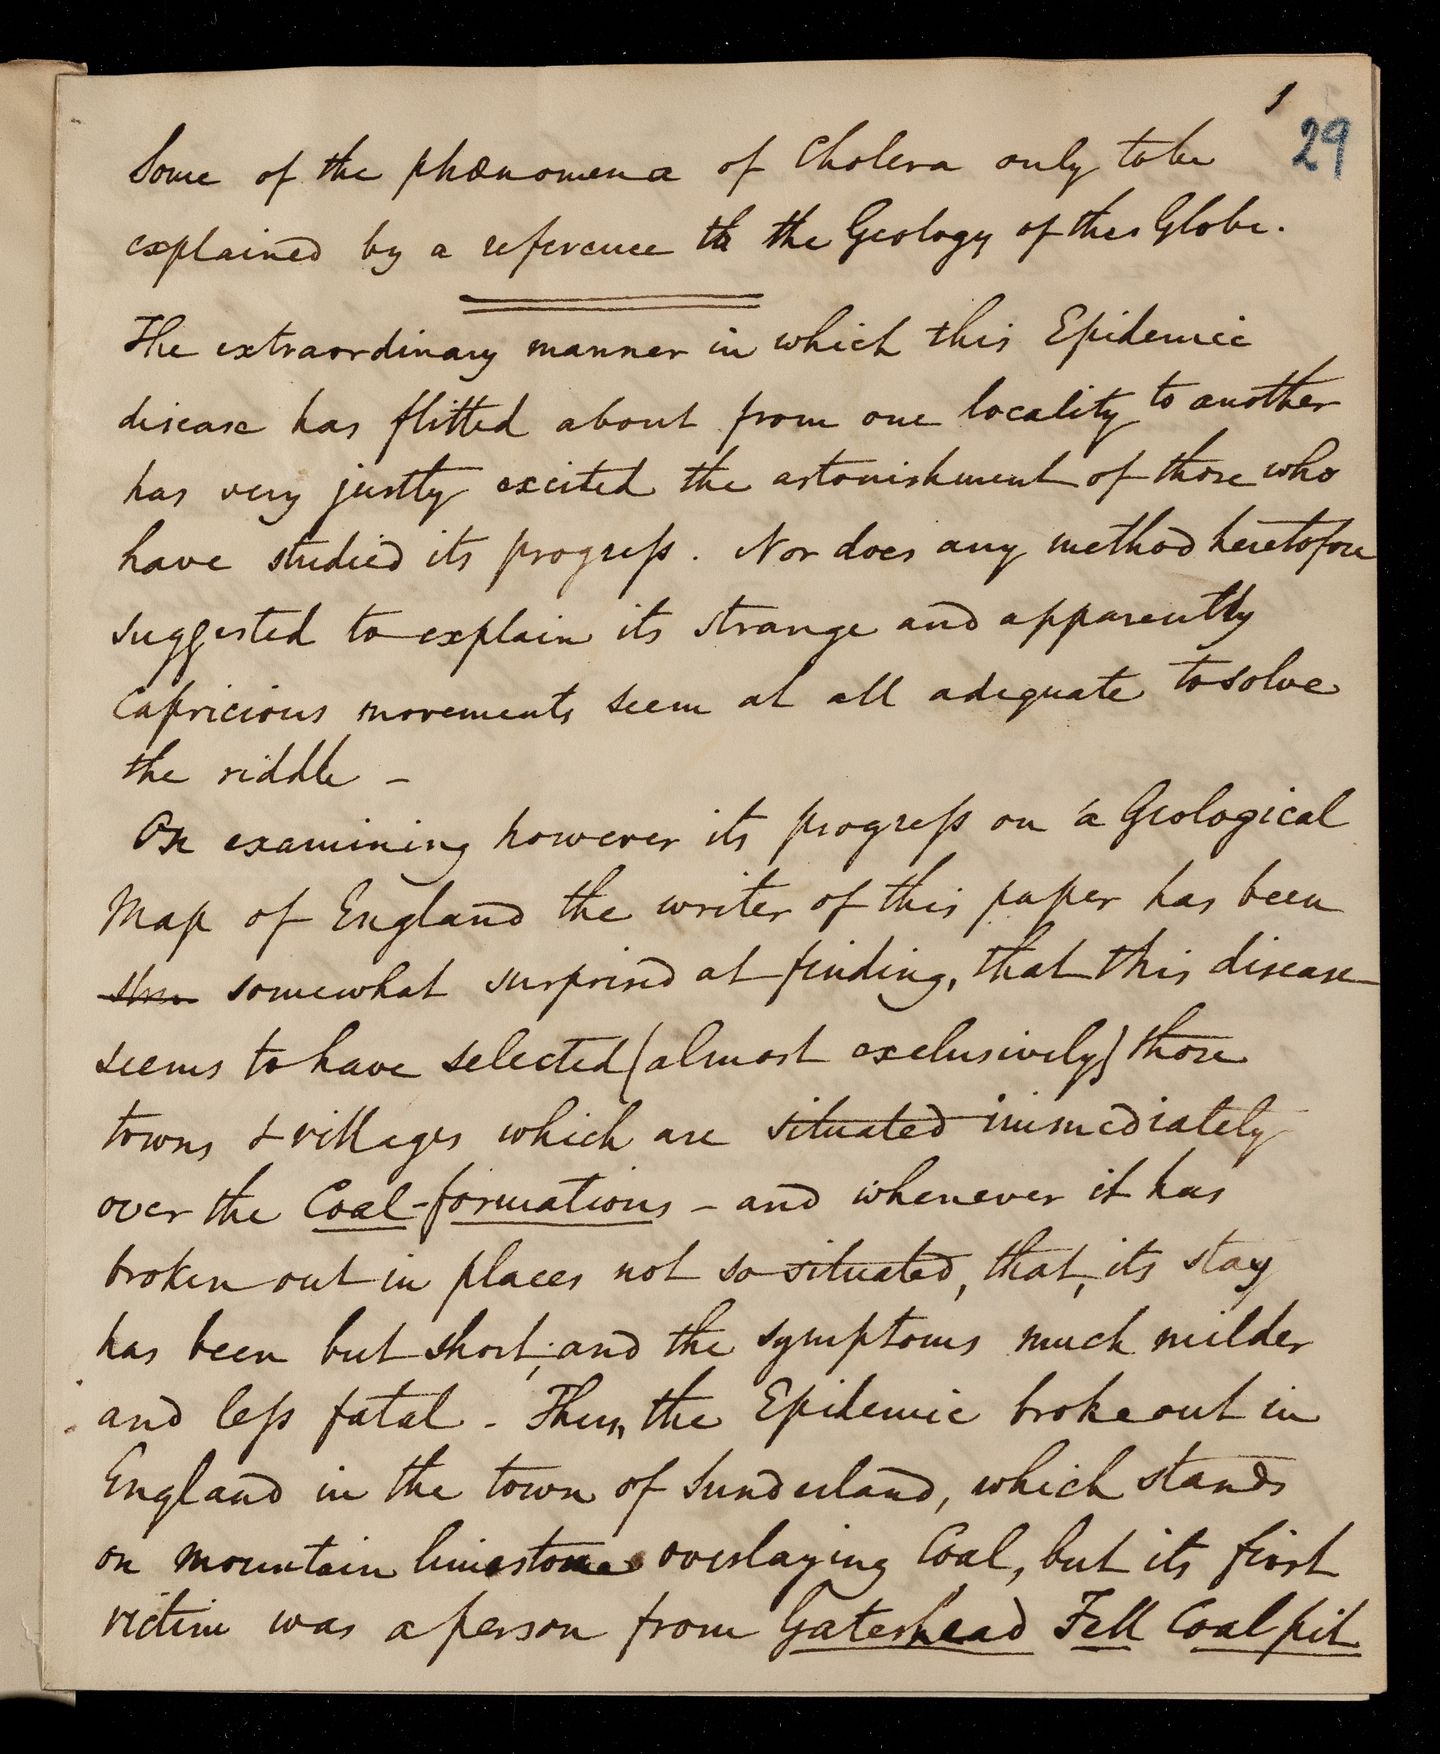 1
29
Some of the phænomena of Cholera only to be
explained by a reference to the Geology of the Globe.
The extraordinary manner in which this Epidemic
disease has flitted about from one locality to another
has very justly excited the astonishment of those who
have studied its progress. Nor does any method heretofore
suggested to explain its strange and apparently
Capricious movements seem at all adequate to solve
the riddle –
On examining however its progress on a Geological
Map of England the writer of this paper has been
somewhat surprised at finding, that this disease
seems to have selected (almost exclusively) those
towns & villages which are situated immediately
over the Coal-formations – and whenever it has
broken out in places not so situated, that, its stay
has been but short; and the symptoms much milder
and less fatal – Thus, the Epidemic broke out in
England in the town of Sunderland, which stands
on mountain limestone overlaying Coal, but its first
victim was a person from Gateshead Fell Coalpit